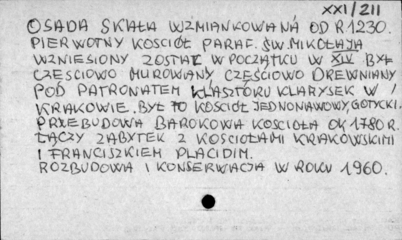 XXI/211
OSADA SKAŁA WZMIANKOWANÁ OD R 1230.
PIERWOTNY KOSCIÓŁ PARAF. ŚW. MIKOŁAJA
WZNIESIONY ZOSTAŁ W POCZĄTKU W XIV BYŁ
CZESCIOWO MUROWANY CZĘŚCIOWO DREWNIANY
POD PATRONATEM KLASZTORU KLARYSEK W
KRAKOWIE. BYŁ TO KOSCIOŁ JEDNONAWOWY, GOTYCKI.
PRZEBUDOWA BAROKOWA KOSCIOŁA OK 1780 R.
ŁĄCZY ZABYTEK Z KOSCIOŁAMI KRAKOWSKIMI
I FRANCISZKIEM PLACIDIM.
ROZBUDOWA I KONSERWACJA W ROKU 1960.